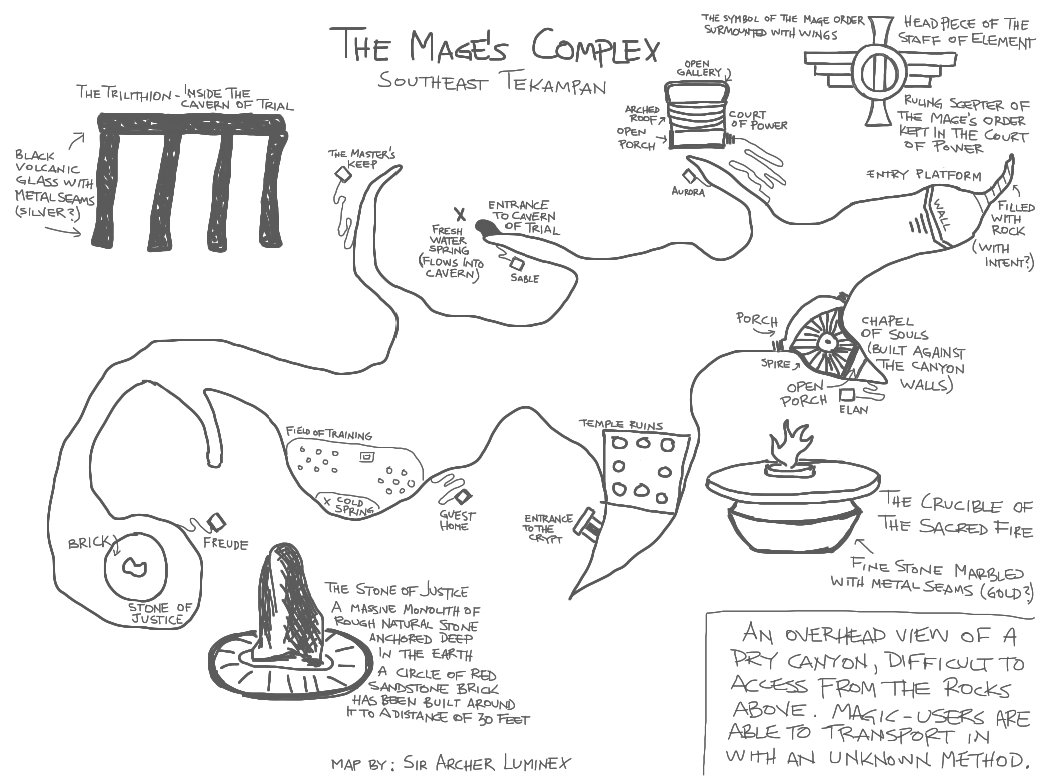 THE MAGE'S COMPLEX
SOUTHEAST TEKAMPAN
THE SYMBOL OF THE MAGE ORDER
SURMOUNTED WITH WINGS
HEADPIECE OF THE
STAFF OF ELEMENT
RULING SCEPTER OF
THE MAGE'S ORDER
KEPT IN THE COURT
OF POWER
THE TRILITHION - INSIDE THE
CAVERN OF TRIAL
BLACK
VOLCANIC
GLASS WITH
METAL SEAMS
(SILVER?)
THE MASTER'S
KEEP
OPEN
GALLERY
ARCHED
ROOF
OPEN
PORCH
COURT
OF POWER
AURORA
ENTRY PLATFORM
WALL
FILLED
WITH
ROCK
(WITH
INTENT?)
X
FRESH
WATER
SPRING
(FLOWS INTO
CAVERN)
ENTRANCE
TO CAVERN
OF TRIAL
SABLE
PORCH
SPIRE
OPEN
PORCH
CHAPEL
OF SOULS
(BUILT AGAINST
THE CANYON
WALLS)
ELAN
FIELD OF TRAINING
X COLD
SPRING
GUEST
HOME
TEMPLE RUINS
ENTRANCE
TO THE
CRYPT
FREUDE
BRICK
STONE OF
JUSTICE
THE STONE OF JUSTICE
A MASSIVE MONOLITH OF
ROUGH NATURAL STONE
ANCHORED DEEP
IN THE EARTH
A CIRCLE OF RED
SANDSTONE BRICK
HAS BEEN BUILT AROUND
IT TO A DISTANCE OF 30 FEET
THE CRUCIBLE OF
THE SACRED FIRE
FINE STONE MARBLED
WITH METAL SEAMS (GOLD?)
AN OVERHEAD VIEW OF A
DRY CANYON, DIFFICULT TO
ACCESS FROM THE ROCKS
ABOVE. MAGIC-USERS ARE
ABLE TO TRANSPORT IN
WITH AN UNKNOWN METHOD.
MAP BY: SIR ARCHER LUMINEX